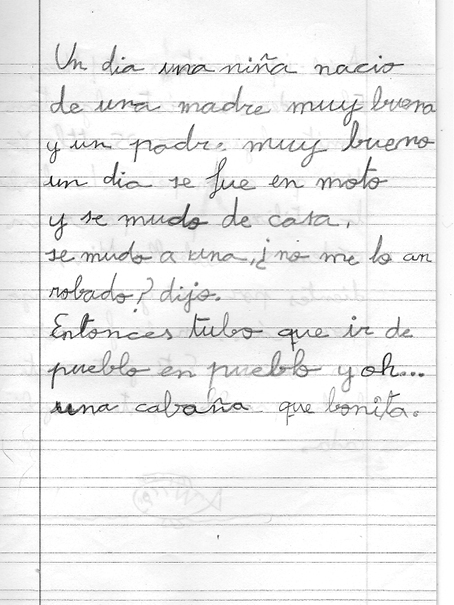 Un dia una niña nacio
de una madre muy buena
y un padre muy bueno
un dia se fue en moto
y se mudo de casa,
se mudo a una, ¿no me lo an
robado? dijo.
Entonces tubo que ir de
pueblo en pueblo y oh...
una cabaña que bonita.